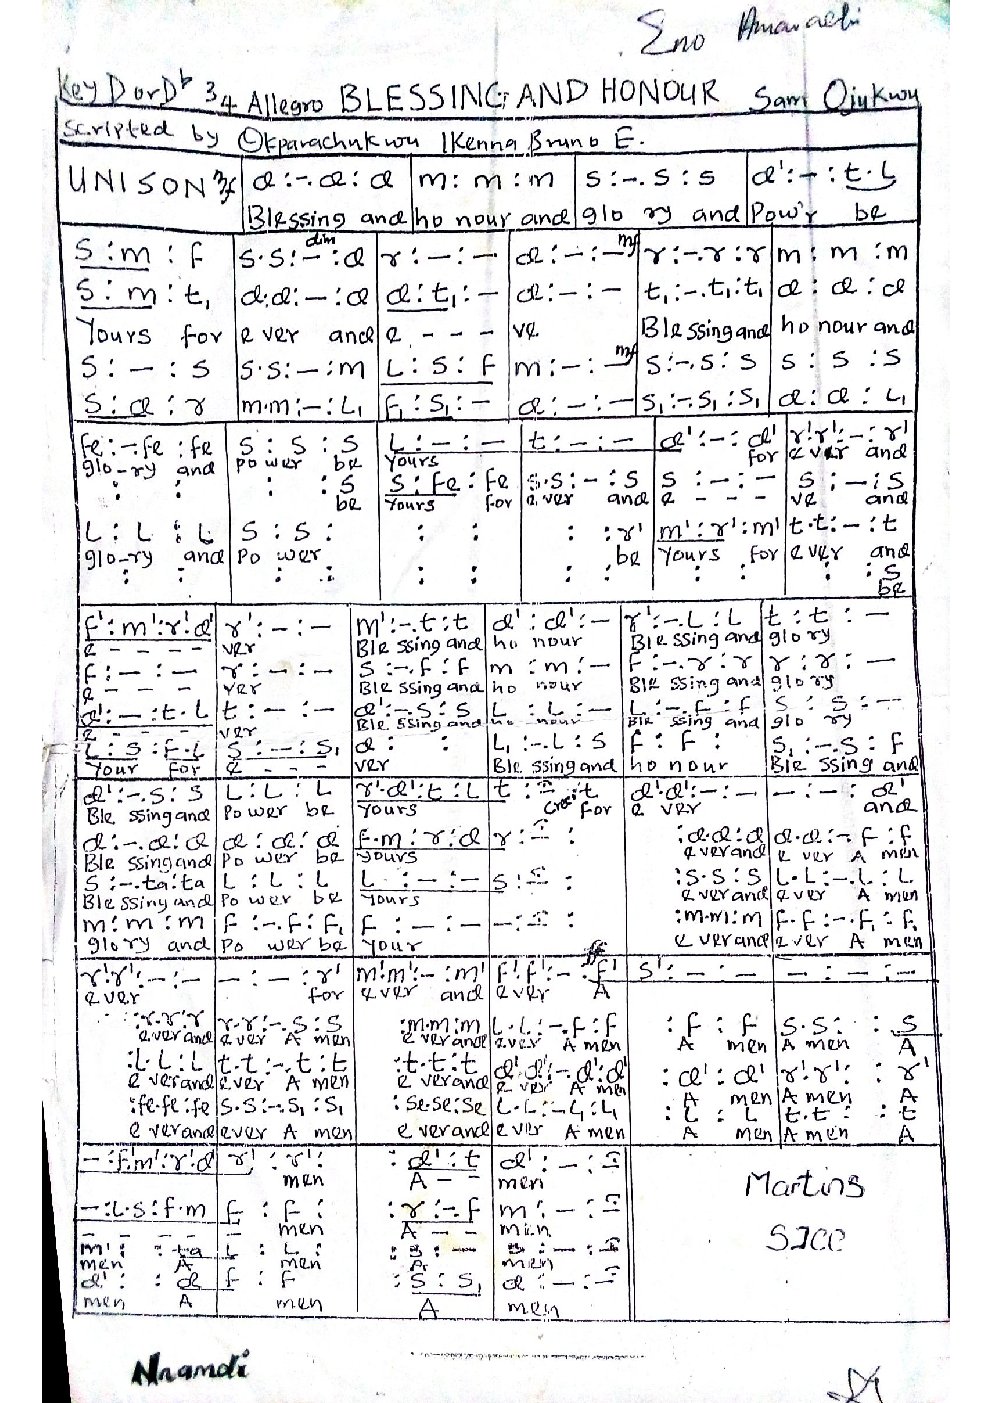 Eno Amarachi
Key D or Dᵇ 3/4 Allegro BLESSING AND HONOUR Sam Ojukwu
Scripted by Okparachukwu Ikenna Bruno E.
UNISON mf d:-.d:d | m:m:m | s:-.s:s | d':-:t.l
Blessing and ho nour and glo ry and Pow'r be
s:m:f | s.s:-:d dim | r:-:- | d:-:- mf | r:-.r:r | m:m:m
s:m:t, | d.d:-:d | d:t,:- | d:-:- | t,:-.t,:t, | d:d:d
Yours for e ver and e - - - ve Blessing and ho nour and
s:-:s | s.s:-:m | l:s:f | m:-:- mf | s:-.s:s | s:s:s
s:d:r | m.m:-:l, | f,:s,:- | d:-:- | s,:-.s,:s, | d:d:l,
fe:-fe:fe | s:s:s | l:-:- | t:-:- | d':-:d' | r'.r':-:r'
glo-ry and Po wer be Yours for e ver and
: : | : :s | s:fe:fe | s.s:-:s | s:-:- | s:-:s
be Yours for e ver and e - - - ve and
l:l:l | s:s: | : : | : :r' | m':r':m' | t.t:-:t
glo-ry and Po wer be Yours for e ver and
: : | : : | : : | : : | : : | : :s
be
f':m':r'.d' | r':-:- | m':-.t:t | d':d':- | r':-.l:l | t:t:-
e - - - - ver Ble ssing and ho nour Ble ssing and glo ry
f:-:- | r:-:- | s:-.f:f | m:m:- | f:-.r:r | r:r:-
e - - - ver Ble ssing and ho nour Ble ssing and glo ry
d':-:t.l | t:-:- | d':-.s:s | l:l:- | l:-.f:f | s:s:-
e - - - - ver Ble ssing and ho nour Ble ssing and glo ry
l:s:f.l | s:-:s, | d: : | l,:-.l:s | f:f: | s,:-.s:f
Your for e - - - ver Ble ssing and ho nour Ble ssing and
d':-.s:s | l:l:l | r'.d':t:l | t:-:t | d'.d':-:- | -:-:d'
Ble ssing and Power be Yours cres for e ver and
d:-.d:d | d:d:d | f.m:r:d | r:-: | :d.d:d | d.d:-.f:f
Ble ssing and Po wer be yours e ver and e ver A men
s:-.ta:ta | l:l:l | l:-:- | s:-: | :s.s:s | l.l:-.l:l
Blessing and Po wer be Yours e ver and e ver A men
m:m:m | f:-.f:f, | f:-:- | -:-: | :m.m:m | f.f:-.f,:f,
glo ry and Po wer be Your e ver and e ver A men
r'.r':-:- | -:-:r' | m'.m':-:m' | f'.f':-:f' ff | s':-:- | -:-:-
e ver for e ver and e ver A
:r.r:r | r.r:-.s:s | :m.m:m | l.l:-.f:f | :f:f | s.s: :s
e ver and e ver A men e ver and e ver A men A men A men A
:l.l:l | t.t:-.t:t | :t.t:t | d'.d':-.d':d' | :d':d' | r'.r': :r'
e ver and e ver A men e ver and e ver A men A men A men A
:fe.fe:fe | s.s:-.s,:s, | :se.se:se | l.l:-.l,:l, | :l:l | t.t: :t
e ver and ever A men e ver and e ver A men A men A men A
-:f'.m':r'.d' | r':r': | :d':t | d':-:-
men A - - men
-:l.s:f.m | f:f: | :r:-.f | m:-:-
- - - - - men A - - men
m': :ta | l:l: | :s:- | s:-:-
men A men A men
d': :d | f:f | :s:s, | d:-:-
men A men A men
Martins
SJCC
Nnamdi